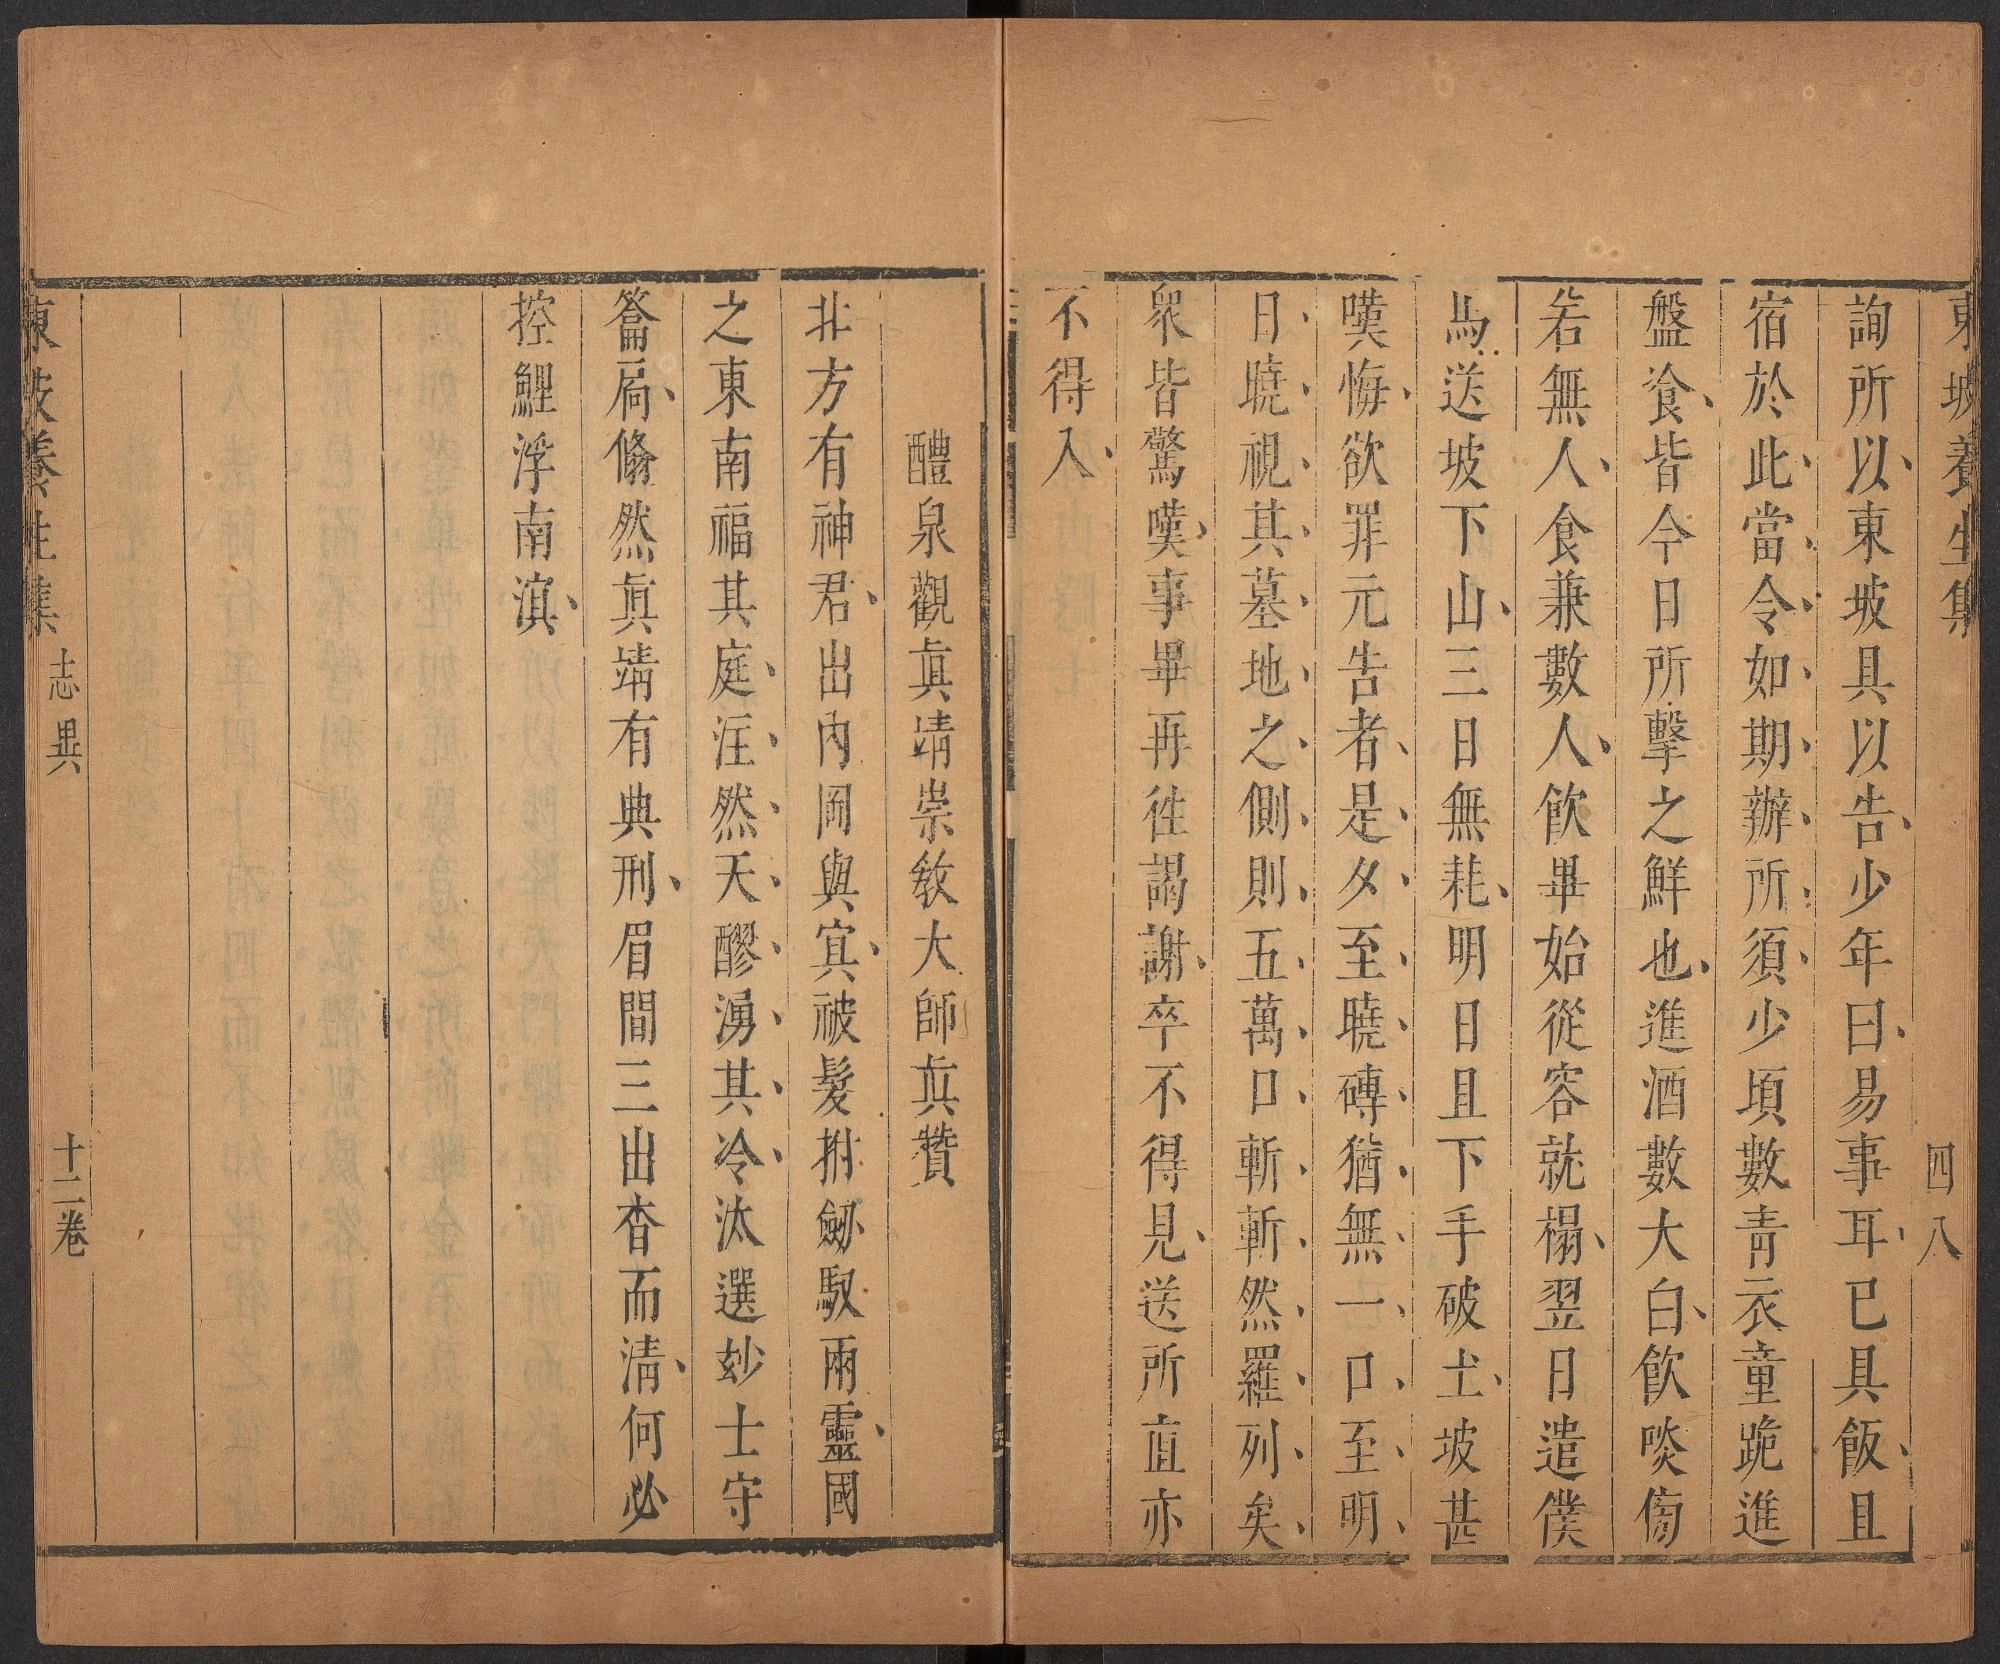 東坡養生集 四八
詢所以東坡具以告少年曰易事耳已具飯且
宿於此當令如期辦所須少頃數青衣童跪進
盤飡皆今日所擊之鮮也進酒數大白飲啖傍
若無人食兼數人飲畢始從容就榻翌日遣僕
馬送坡下山三日無耗明日且下手破土坡甚
嘆悔欲罪元告者是夕至曉磚猶無一口至明
日曉視其墓地之側則五萬口斬斬然羅列矣
衆皆驚嘆事畢再徃謁謝卒不得見送所直亦
不得入
醴泉觀眞靖崇敎大師眞贊
北方有神君出內岡與㝠被髮拊劒馭兩靈國
之東南福其庭汪然天醪湧其冷汰選妙士守
籥扃翛然眞靖有典刑眉間三出杳而淸何必
控鯉浮南溟
東坡養生集 志異 十二卷